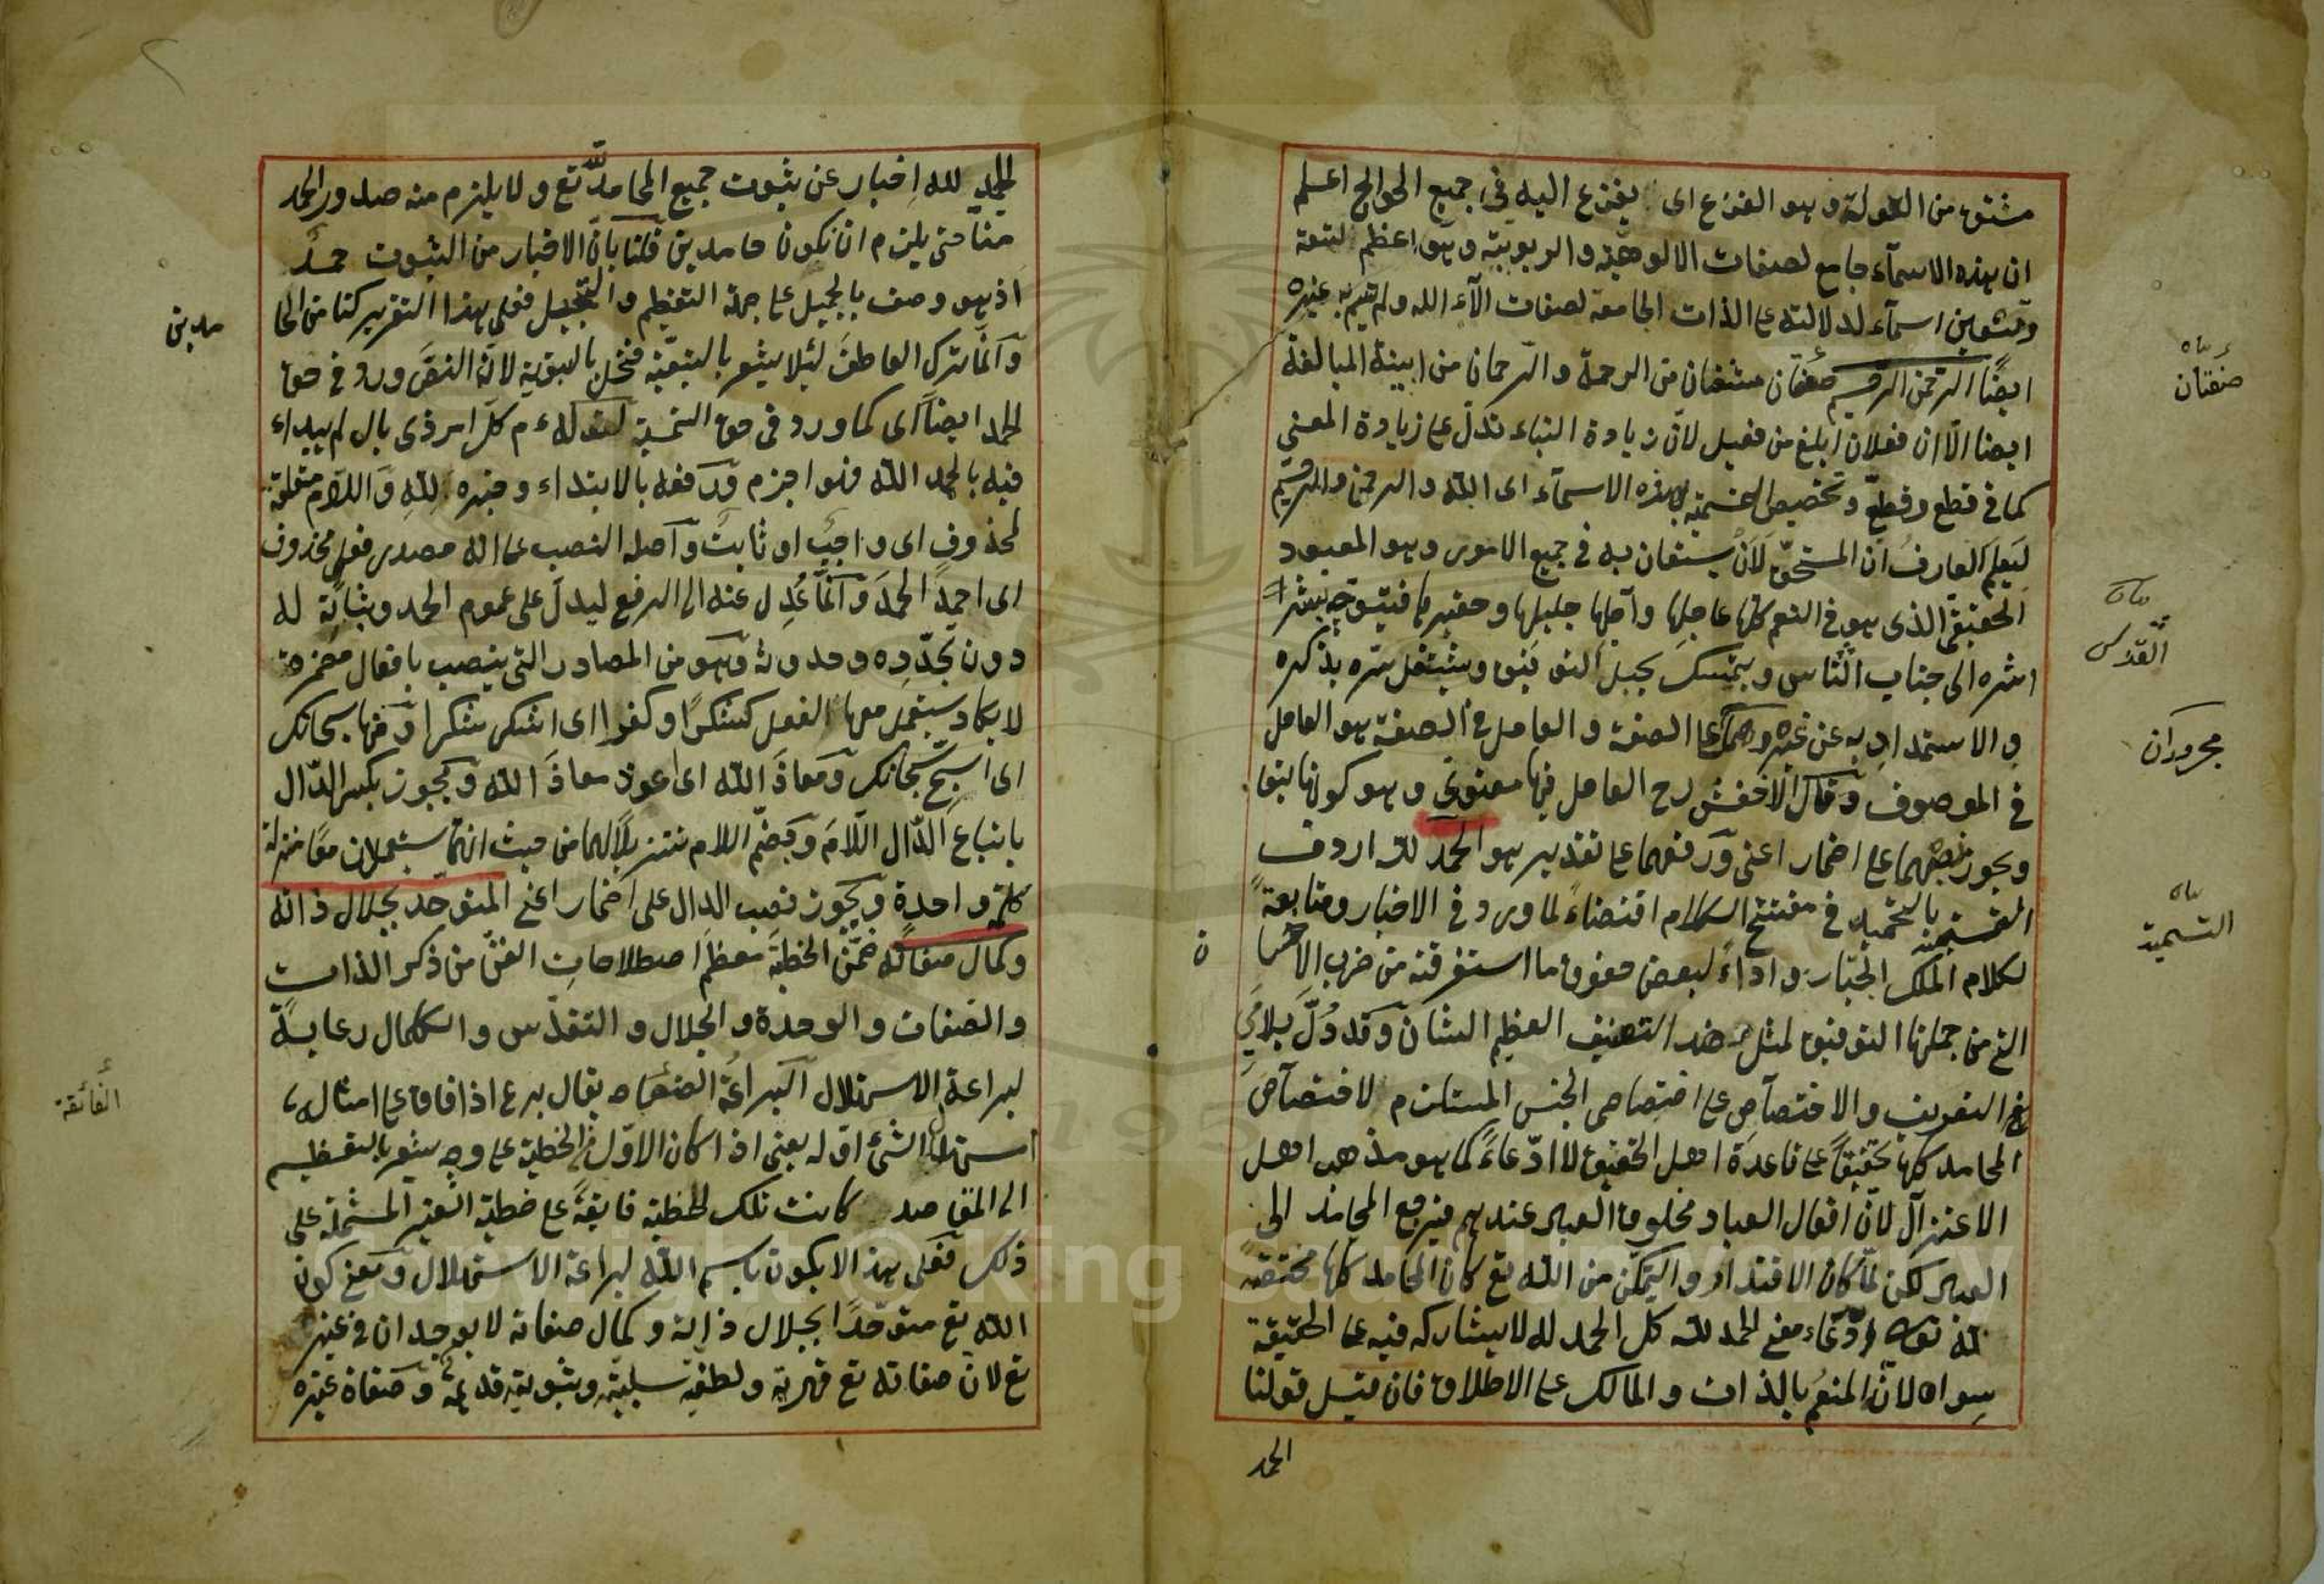 مشتق من الوله وهو الفزع اى يفزع اليه فى جميع الحوائج اعلم
ان هذه الاسمآء جامع لصفات الالوهية والربوبية وهو اعظم لتعة
وتسعين اسمآء لدلالته على الذات الجامعة لصفات الآء الله ولم يسم به غيره
ايضًا الرحمن الرحيم صفتان مشتقان من الرحمة والرحمان من ابنية المبالغة
ايضا الّا ان فعلان ابلغ من فعيل لانّ زيادة البناء تدلّ على زيادة المعنى
كما فى قطع وقطّع وتخصيص التسمية بهذه الاسمآء اى الله والرحمن والرحيم
ليَعلم العارفُ انّ المستحقّ لَاَنْ يستعان به فى جميع الامور وهو المعبود
الحقيقى الذى هو فى النعم كلها عاجلها وآجلها جليلها وحقيرها فيتوجّه بشرا
اشره الى جناب القدس ويتمسك بحبل التوفيق ويشتغل سره بذكره
والاستمداد به عن غيره وهما على الصفة والعامل فى الصفة هو العامل
فى الموصوف وقال الاخفش رح العامل فيها معنوىّ وهو كونها تبعا
ويجوز نصبهما على اضمار اعنى ورفعهما على تقدير هو الحمد لله اردف
التسمية بالتحميد فى مفتتح الكلام اقتضاءً لما ورد فى الاخبار ومتابعةً
لكلام الملك الجبّار واداءً لبعض حقوق ما استغرقته من ضرب الاحسا
التى من جملتها التوفيق لمثل هذا التصنيف العظيم الشان وقد دُلَّ بلامَىِ
التعريف والاختصآصِ على اختصاص الجنس المستلزم لاختصآصِ
المحامد كلها تحقيقًا على قاعدة اهل الحقيق لا ادّعاءً كما هو مذهب اهل
الاعتزال لانّ افعال العباد مخلوق العبد عندهم فيرجع المحامد الى
العبد لكن لمّا كان الاقتدار والتمكّن من الله تع كان المحامد كلها مختصّة
لله تعه ادّعاء فمعنى الحمد لله كل الحمد له لا يشاركه فيه على الحقيقة
سواه لانّ المنعم بالذات والمالك على الاطلاق فان قيل قولنا
الحمد
صفتان
القدس
مجرودان
التسمية
ن
الحمد لله اِخبار عن ثبوت جميع المحامد لله تع ولا يلزم منه صدور الحمد
منّا حتى يلزم ان نكون حامدين قلنا بانّ الاخبار من الثبوت حمدٌ
اذ هو وصف بالجميل على جهة التعظيم والتبجيل فعلى هذا التقرير كنا من الحا
وانّما ترك العاطفَ لئلا يشعر بالتبعيّة فيخلّ بالسوية لانّ النصّ ورد فى حق
الحمد ايضًا اى كما ورد فى حق التسمية لقوله ءم كلّ امر ذى بال لم يبداء
فيه بالحمد الله فهو اجزم ورفعه بالابتداء وخبره لله واللام متعلقة
لمحذوفٍ اى واجبٌ او ثابتٌ واصله النصب على انه مصدر فعل محذوف
اى احمد الحمدَ وانّما عُدِل عنه الى الرفع ليدلّ على عموم الحمد وثباته له
دون تجدّدِه وحدوثه وهو من المصادر التى ينصب بافعال مضمرة
لا يكاد يستعمل معها الفعل كشكرًا وكفرا اى اشكر شكرا ومنها سبحانك
اى اسبّح سبحانك ومعاذَ الله اى اعوذ معاذَ الله ويجوز بكسر الدّال
باتباع الدّال اللامَ وبضمّ اللام تنزيلًا لهما من حيث انّهما يستعملان معًا منزلة
كلمة واحدة ويجوز نصب الدال على اضمار اعنى المتوحّد بجلال ذاته
وكمال صفاته ضمّن الخطبة معظم اصطلاحات الفنّ من ذكر الذات
والصّفات والوحدة والجلال والتقدّس والكمال رعايةً
لبراعة الاستهلال البراعة الفائقة يقال برع اذا فاق على امثاله
استهلال الشئ اوّله يعنى اذا كان الاوّل فى الخطبة على وجه يشعر بالتعظيم
الى المقاصد كانت تلك الخطبة فايقةً على خطبة الغير المشتملة على
ذلك فعلى هذا لا يكون باسم الله لبراعة الاستهلال ومعنى كون
الله تع متوحّدًا بجلال ذاته وكمال صفاته لا يوجدان فى غيره
تع لانّ صفاته تع قهرية ولطفية سلبية وثبوتية قديمة وصفاة غيره
مدين
الفائقة